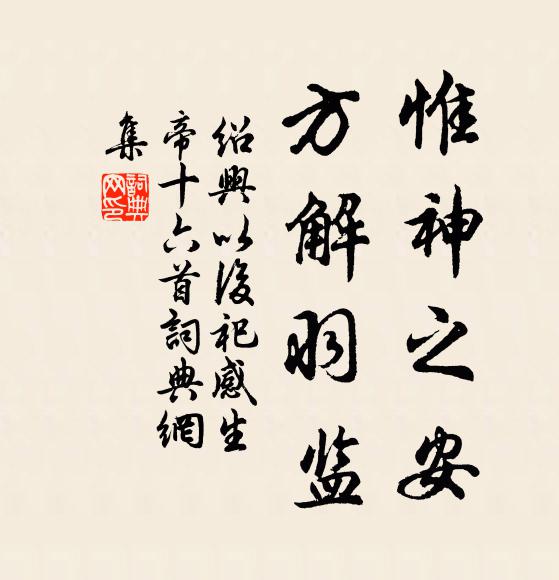 惟神之安
方解羽监
绍興以後祀感生
帝十六首詞典網
集
詞典
网印